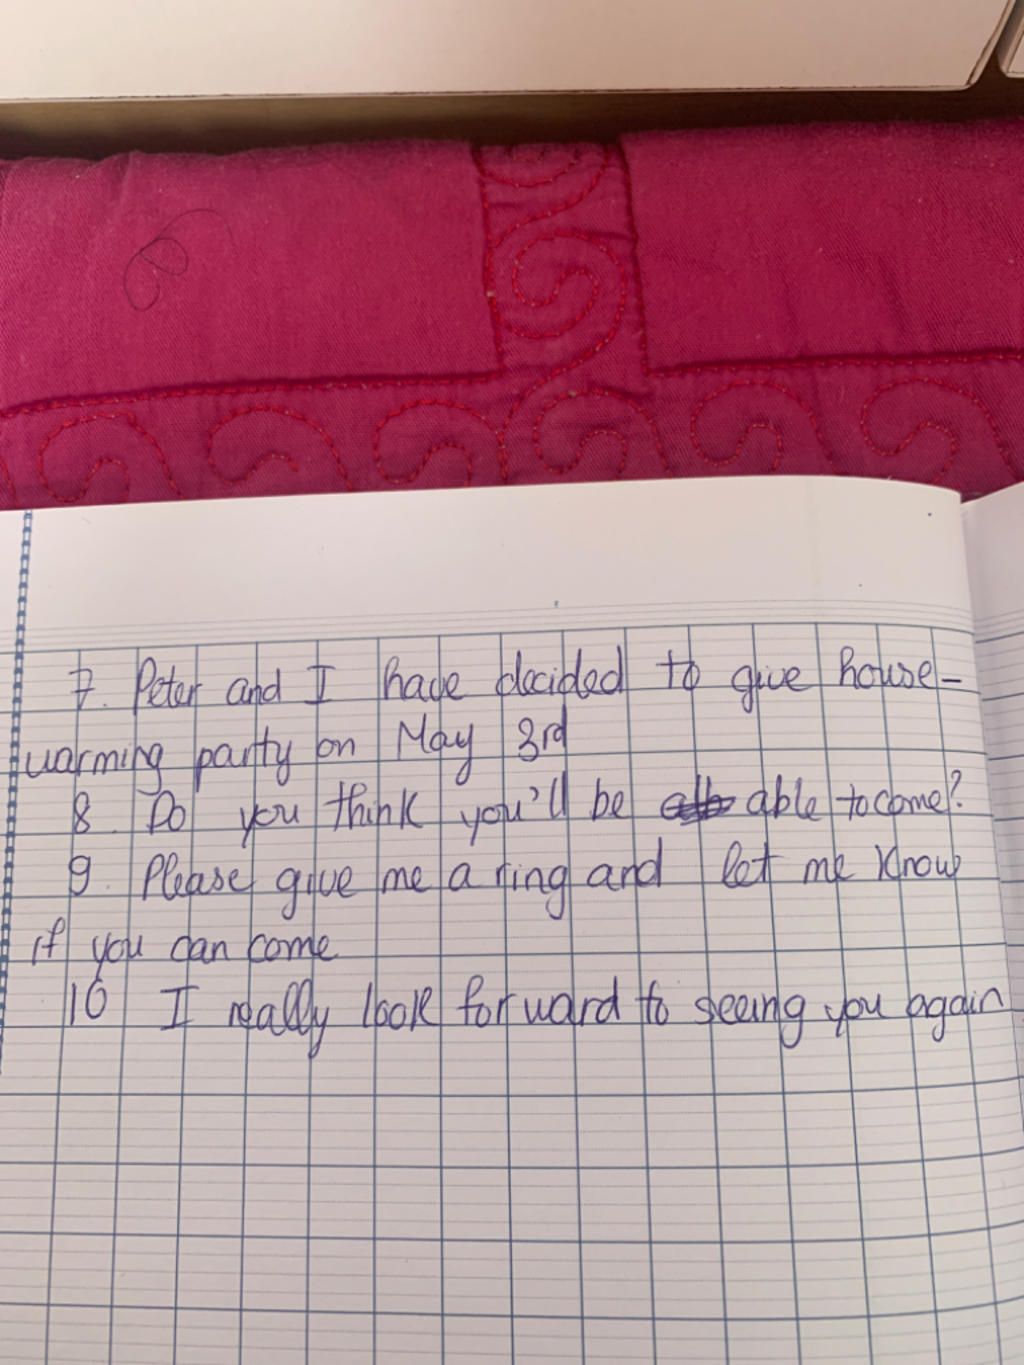 7. Peter and I have decided to give house-
warming party on May 3rd
8. Do you think you'll be able to come?
9. Please give me a ring and let me know
if you can come
10 I really look forward to seeing you again